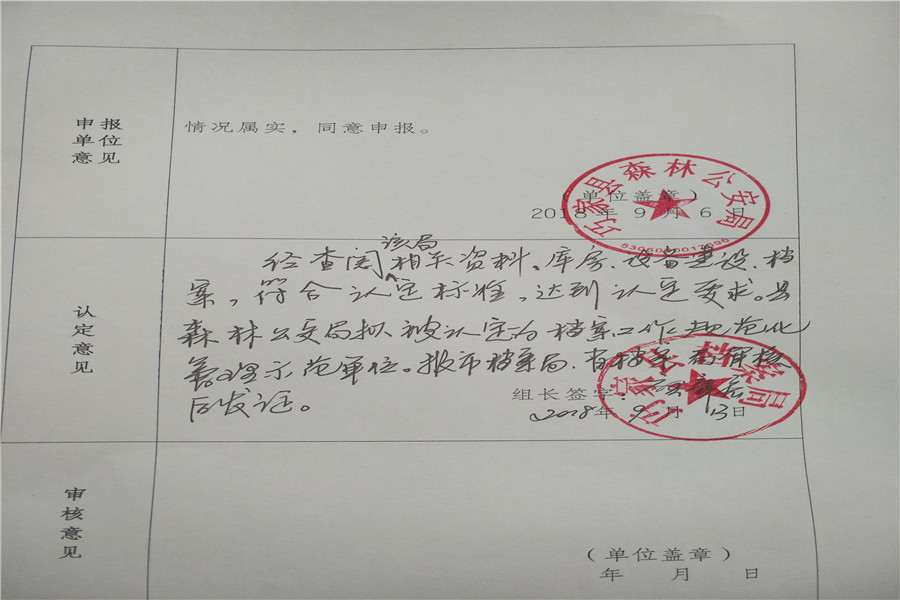 申报
单位
意见
情况属实，同意申报。
巧家县森林公安局
（单位盖章）
2018年9月6日
认定意见
该局
经查阅相关资料、库房、设备建设、档
案，符合认定标准，达到认定要求。县
森林公安局拟被认定为档案工作规范化
管理示范单位。报市档案局、省档案局审核
后发证。
组长签字：
2018年9月13日
审核意见
（单位盖章）
年 月 日